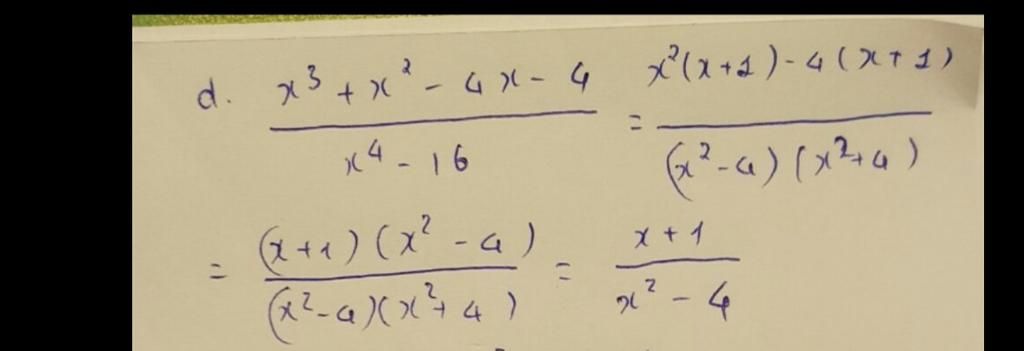 d. (x³ + x² - 4x - 4)/(x⁴ - 16) = (x²(x+1) - 4(x+1))/((x²-4)(x²+4))
= ((x+1)(x² - 4))/((x²-4)(x²+4)) = (x+1)/(x² - 4)